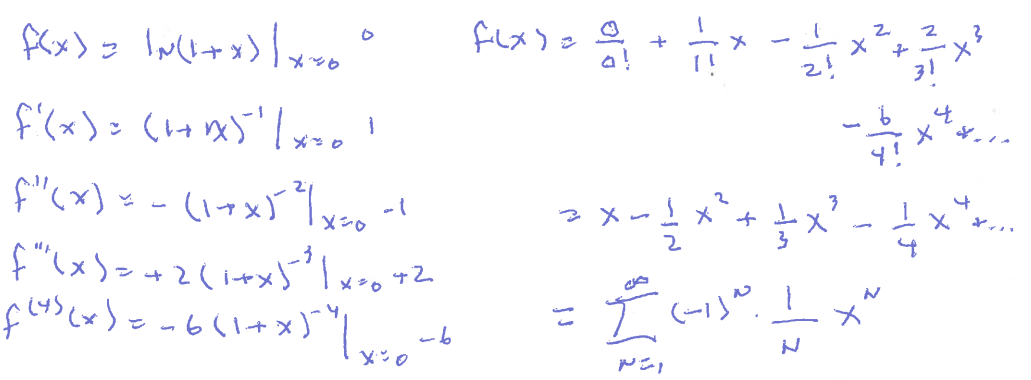 f(x) = ln(1+x)|x=0 0
f'(x) = (1+x)^-1|x=0 1
f''(x) = -(1+x)^-2|x=0 -1
f'''(x) = +2(1+x)^-3|x=0 +2
f^(4)(x) = -6(1+x)^-4|x=0 -6
f(x) = 0/0! + 1/1! x - 1/2! x^2 + 2/3! x^3
- 6/4! x^4 + ...
= x - 1/2 x^2 + 1/3 x^3 - 1/4 x^4 + ...
= ∑_{N=1}^{∞} (-1)^N · 1/N x^N